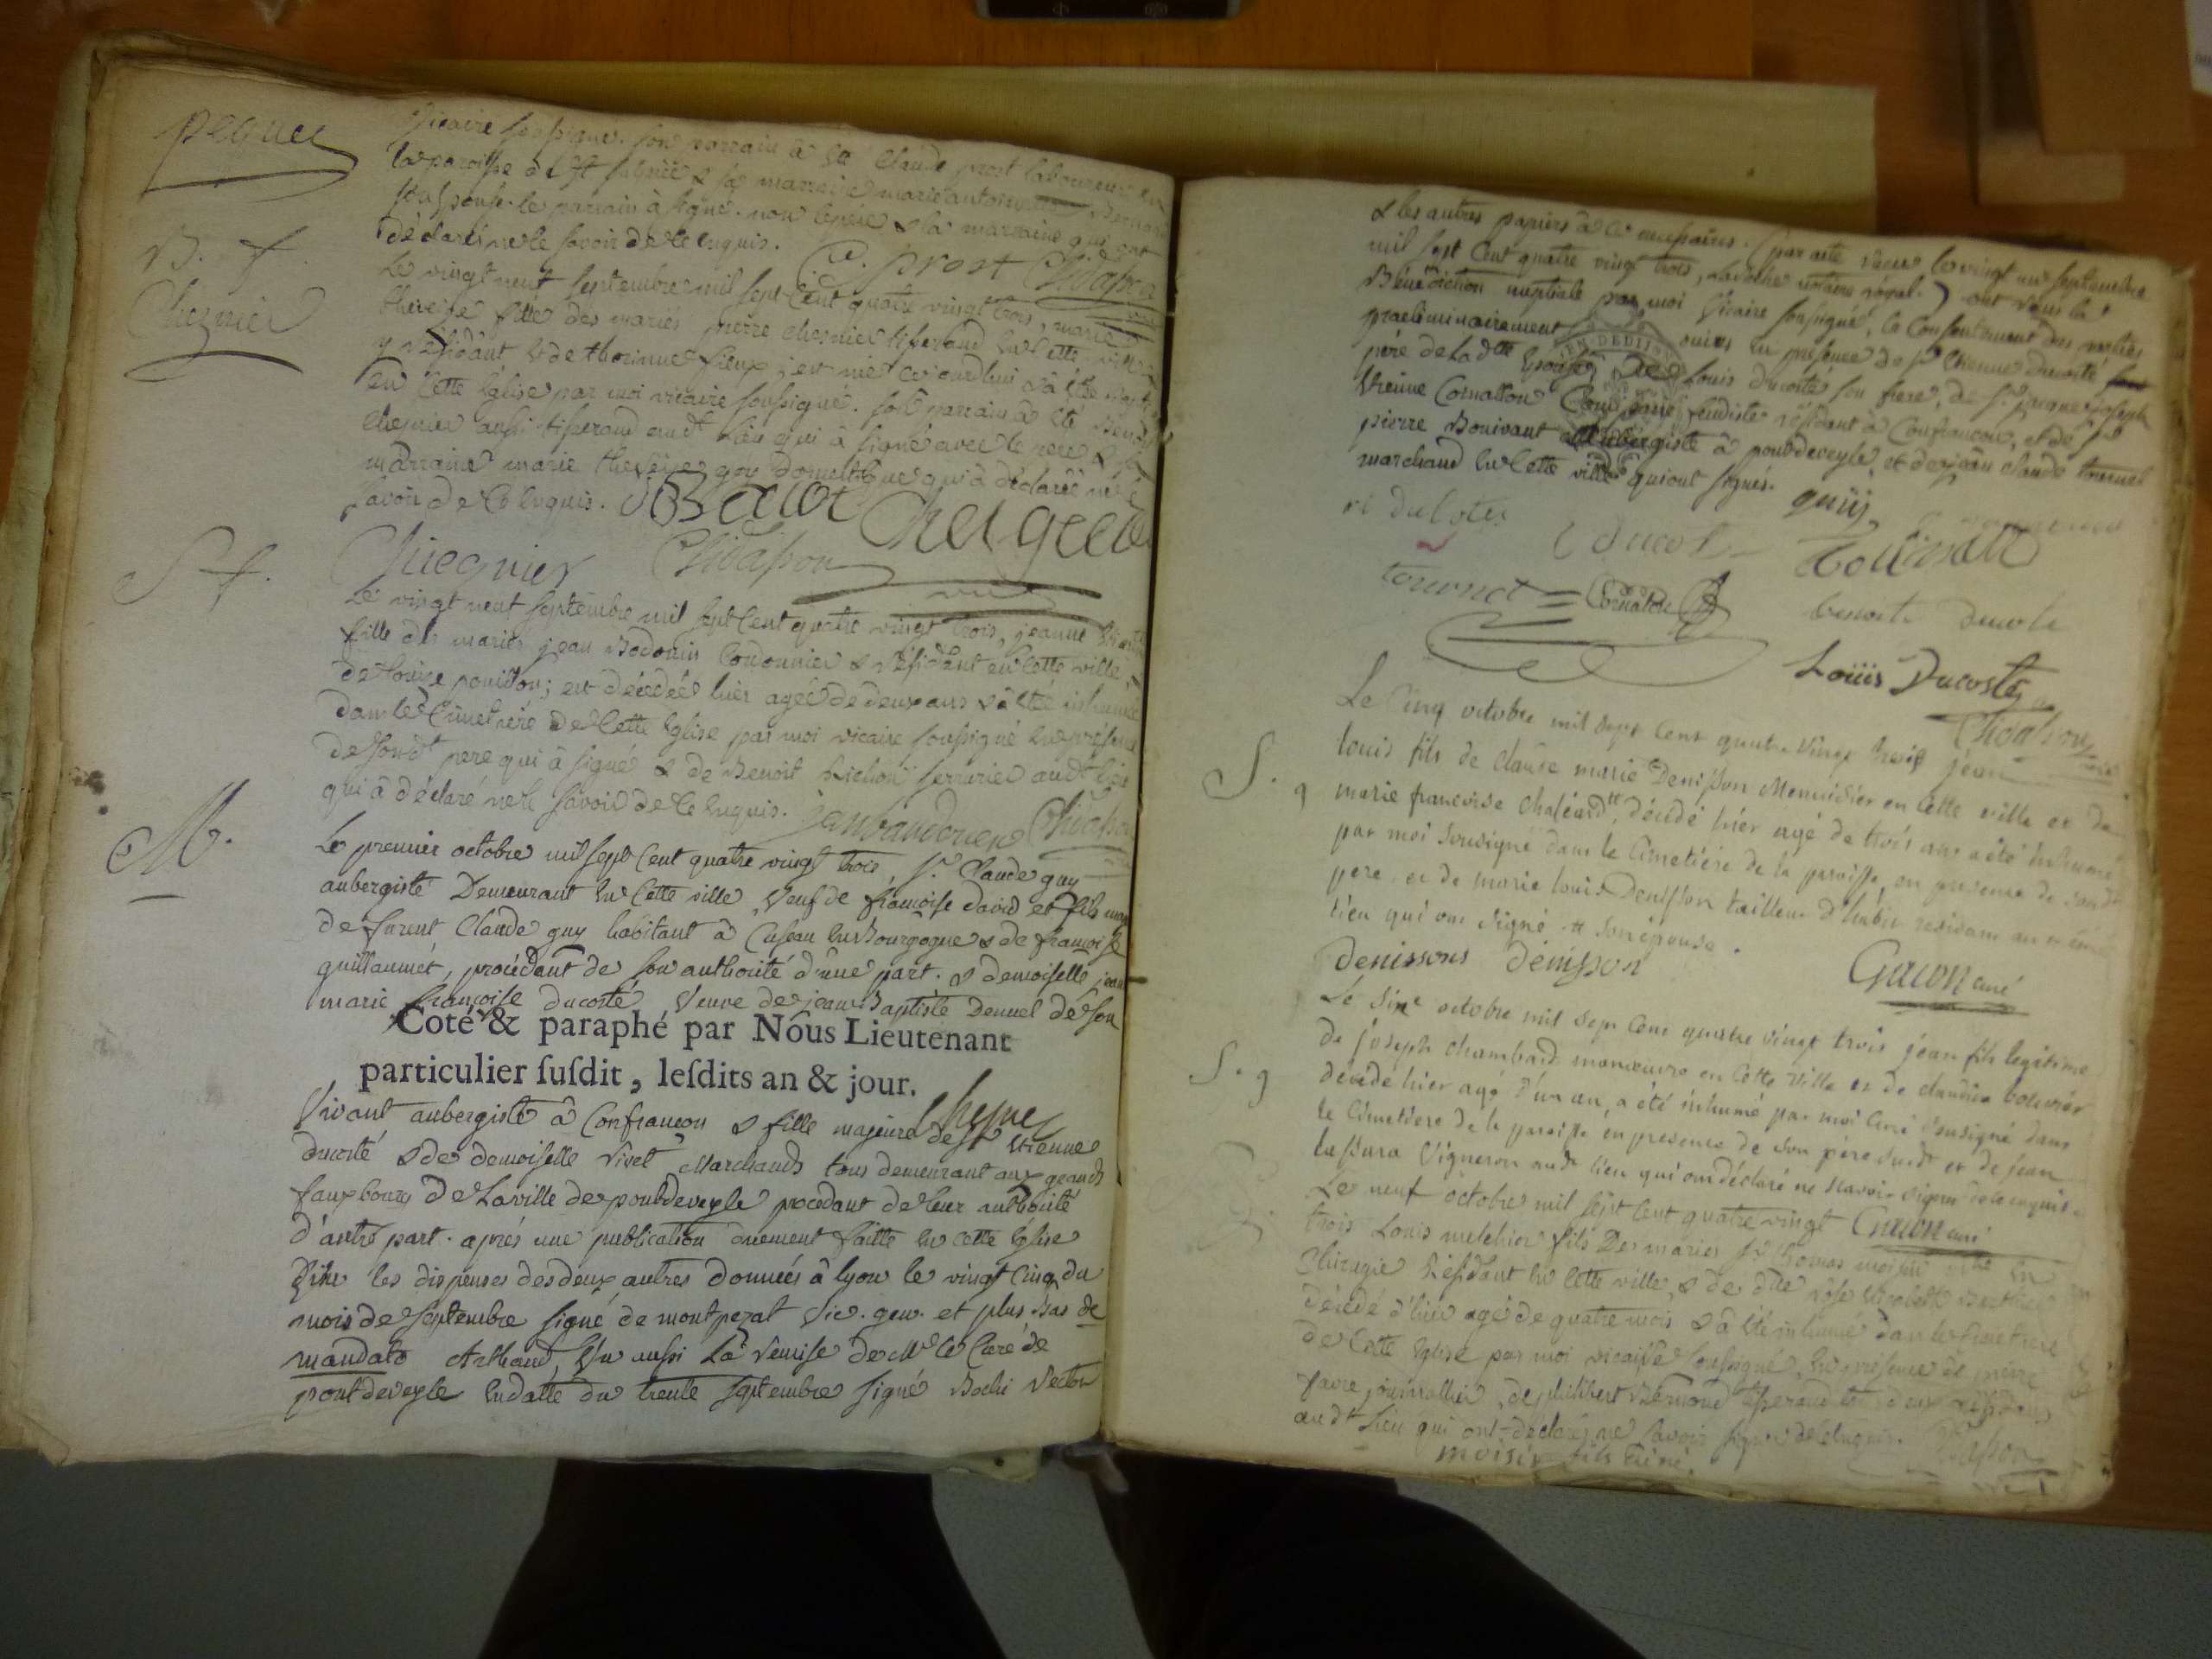 peguet
vicaire soussigné. son parrain a été Claude prost laboureur en
la paroisse de st sulpice & sa marraine marie antoinette Bernard
son épouse. le parrain à signé. non le père & la marraine qui ont
déclarés ne le savoir de ce enquis. C. prost Chidasson
B. f.
Chegnier
Le vingt neuf septembre mil sept Cent quatre vingt trois, marie
therese fille des mariés pierre chegnier tisserand en Cette ville
y résidant & de thorinne fieux; est née cejourdhui & à été baptisée
en Cette Eglise par moi vicaire soussigné. son parrain a été Benoit
chegnier aussi tisserand audt Lieu qui à signé avec le pere & la
marraine marie therese guy domestique qui à déclaré ne le
savoir de Ce enquis.
Chegnier Chidasson
S f.
Le vingt neuf septembre mil sept Cent quatre vingt trois, jeanne
fille des mariés jean Bodouin Cordonnier & résidant en Cette ville &
de louise pouillon; est décédée hier agée de deux ans & à été inhumée
dans le Cimetière de Cette Eglise par moi vicaire soussigné en présence
de sondt pere qui à signé & de Benoit Richon serrurier audt lieu
qui à déclaré ne le savoir de Ce enquis. janbaudouen Chidasson
M.
Le premier octobre mil sept Cent quatre vingt trois, sr. Claude guy
aubergiste Demeurant en Cette ville, Veuf de françoise david et fils
de furent Claude guy habitant à Cuseau en Bourgogne & de françoise
guillaumet, procédant de son authorité d'une part. & demoiselle
marie françoise ducosté Veuve de jean Baptiste Denuel de son
Coté & paraphé par Nous Lieutenant
particulier susdit, lesdits an & jour.
Vivant aubergiste à Confrançon & fille majeure de sr Etienne
ducosté & de demoiselle Vivet Marchands tous demeurant aux grands
fauxbourg de La ville de pontdeveyle procédant de leur authorité
d'autre part. après une publication duement faitte en cette Eglise
Vüe les dispenses des deux autres données à lyon le vingt Cinq du
mois de septembre signé de montpezat Vic. gen. et plus Bas de
mandato Arthaud, Vu aussi La remise de Mr le Curé de
pontdeveyle en datte du trente septembre signé Bochi Rector
& les autres papiers à ce nécessaires. (par acte reçu le vingt un septembre
mil sept Cent quatre vingt trois, notaire royal.) ont reçus la
Bénédiction nuptiale par moi Vicaire soussigné, le Consentement des parties
praeliminairement ouies en présence de sr Etienne ducosté
père de Ladtte Epouse, de Louis ducosté son frere, de sr jacque joseph
Etienne Cornatton Commissaire feudiste résidant à Confrancon, et de sr
pierre Bouivant aubergiste à pontdeveyle, et de jean claude tournel
marchand en Cette ville qui ont signés. guÿ
tournet Cornaton benoite ducoste
Loüis Ducosté
Chidasson
S. g
Le Cinq octobre mil sept Cent quatre vingt trois jean
louis fils de claude marie Denisson Menuisier en Cette ville et de
marie francoise chaléard, décédé hier agé de trois ans a été inhumé
par moi sousigné dans le Cimetière de la paroisse, en presence de sondt
pere. et de marie louis Denisson tailleur d'habit residant au même
lieu qui ont signé et son épouse.
denissons denisson Gacon curé
S. g
Le sixe octobre mil sept Cent quatre vingt trois jean fils legitime
de joseph chambard manoeuvre en Cette Ville et de claudine bouvier
décédé hier agé d'un an, a été inhumé par moi Curé sousigné dans
le Cimetiere de la paroisse en presence de son père susdt et de jean
lassara Vigneron audt lieu qui ont déclaré ne scavoir signer de ce enquis.
Gacon curé
Le neuf octobre mil sept Cent quatre vingt
trois Louis melchior fils Des mariés sr thomas
Chirurgie résidant en Cette ville, & de dlle rose Elizabeth
décédé d'hier agé de quatre mois & à été inhumé dans le Cimetiere
de Cette Eglise par moi vicaire soussigné, en présence de pierre
favre journallier, de philibert Bernoud tisserand tous deux résidants
audt Lieu qui ont déclaré ne savoir signer de ce enquis.
moisin fils L'éné.